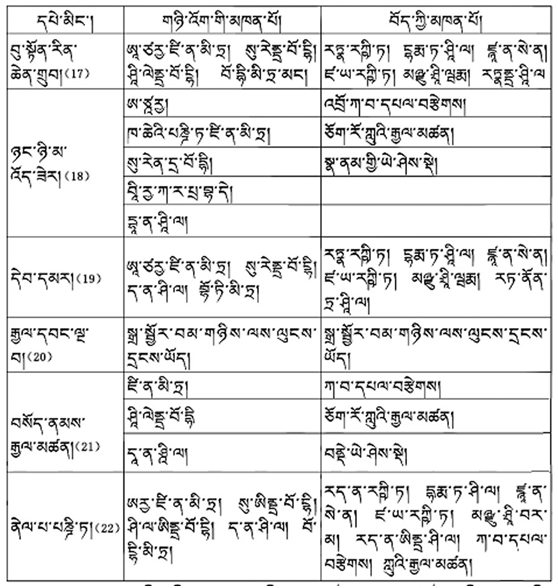 དཔེ་མིང་། གཉི་འོག་གི་མཁན་པོ། བོད་ཀྱི་མཁན་པོ།
བུ་སྟོན་རིན་ཆེན་གྲུབ།(17)
ཨཱ་ཙརྱ་ཛི་ན་མི་ཏྲ། སུ་རེནྡྲ་བོ་དྷི།
ཤཱི་ལེནྡྲ་བོ་དྷི། བོ་དྷི་མི་ཏྲ་མང།
རཏྣ་རཀྵི་ཏ། དྷརྨ་ཏ་ཤཱི་ལ། ཛྙཱ་ན་སེ་ན།
ཛ་ཡ་རཀྵི་ཏ། མཉྫུ་ཤྲཱི་ཝརྨ། རཏྣནྡྲ་ཤཱི་ལ
ཉང་ཉི་མ་
འོད་ཟེར།(18)
ཨ་ཙཱརྱ།
འབྲོ་ཀ་བ་དཔལ་བརྩེགས།
ཁ་ཆེའི་པཎྜི་ཏ་ཛི་ན་མི་ཏྲ།
ཅོག་རོ་ཀླུའི་རྒྱལ་མཚན།
སུ་རེན་དྲ་བོ་དྷི།
སྣ་ནམ་གྱི་ཡེ་ཤེས་སྡེ།
བཱི་རྱ་ཀ་ར་པྲ་བྷ་དེ།
དཱ་ན་ཤཱི་ལ།
དེབ་དམར།(19)
ཨཱ་ཙརྱ་ཛི་ན་མི་ཏྲ། སུ་རེནྡྲ་བོ་དྷི།
ད་ན་ཤི་ལ། བྷོ་ཏི་མི་ཏྲ།
རཏྣ་རཀྵི་ཏ། དྷརྨ་ཏ་ཤཱི་ལ། ཛྙཱ་ན་སེ་ན།
ཛ་ཡ་རཀྵི་ཏ། མཉྫུ་ཤྲཱི་ཝརྨ། རཏ་ནོན་
ཏྲ་ཤཱི་ལ།
རྒྱལ་དབང་ལྔ་
བ།(20)
སྒྲ་སྦྱོར་བམ་གཉིས་ལས་ལུངས་
དྲངས་ཡོད།
སྒྲ་སྦྱོར་བམ་གཉིས་ལས་ལུངས་དྲངས་
ཡོད།
བསོད་ནམས་
རྒྱལ་མཚན།(21)
ཛི་ན་མི་ཏྲ།
ཀ་བ་དཔལ་བརྩེགས།
ཤཱི་ལེནྡྲ་བོ་དྷི
ཅོག་རོ་ཀླུའི་རྒྱལ་མཚན།
དཱ་ན་ཤཱི་ལ།
བནྡེ་ཡེ་ཤེས་སྡེ།
ནེལ་པ་པཎྜི་ཏ།(22)
ཨརྱ་ཛི་ན་མི་ཏྲ། སུ་ཨིནྡྲ་བོ་དྷི།
ཤི་ལ་ཨིནྡྲ་བོ་དྷི། ད་ན་ཤི་ལ། བོ་
དྷི་མི་ཏྲ།
རད་ན་རཀྵི་ཏ། དྷརྨ་ཏ་ཤི་ལ། ཛྙཱ་ན་
སེ་ན། ཛ་ཡ་རཀྵི་ཏ། མཉྫུ་ཤྲཱི་བར་
མ། རད་ན་ཨིནྡྲ་ཤི་ལ། ཀ་བ་དཔལ་
བརྩེགས། ཀླུའི་རྒྱལ་མཚན།